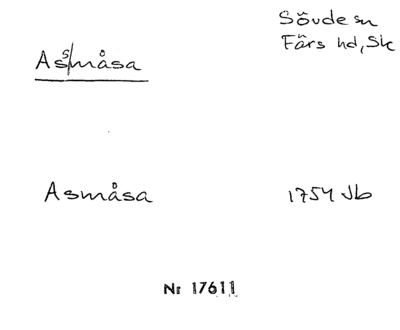 Sövde sn
Färs hd, Sk
Assmåsa
Asmåsa 1754 Jb
Nr 17611